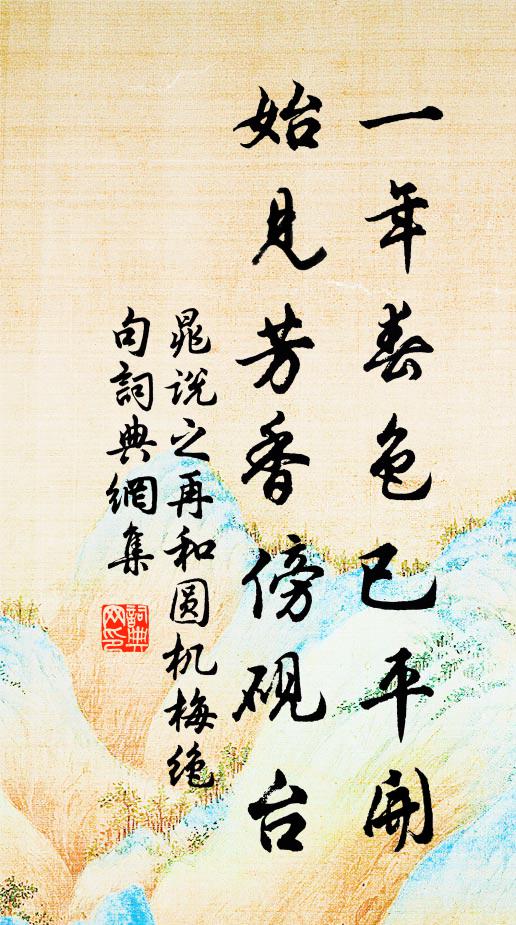 一年春色已平开
始见芳香傍砚台
晁说之再和圆机梅绝
句詞典網集
詞典